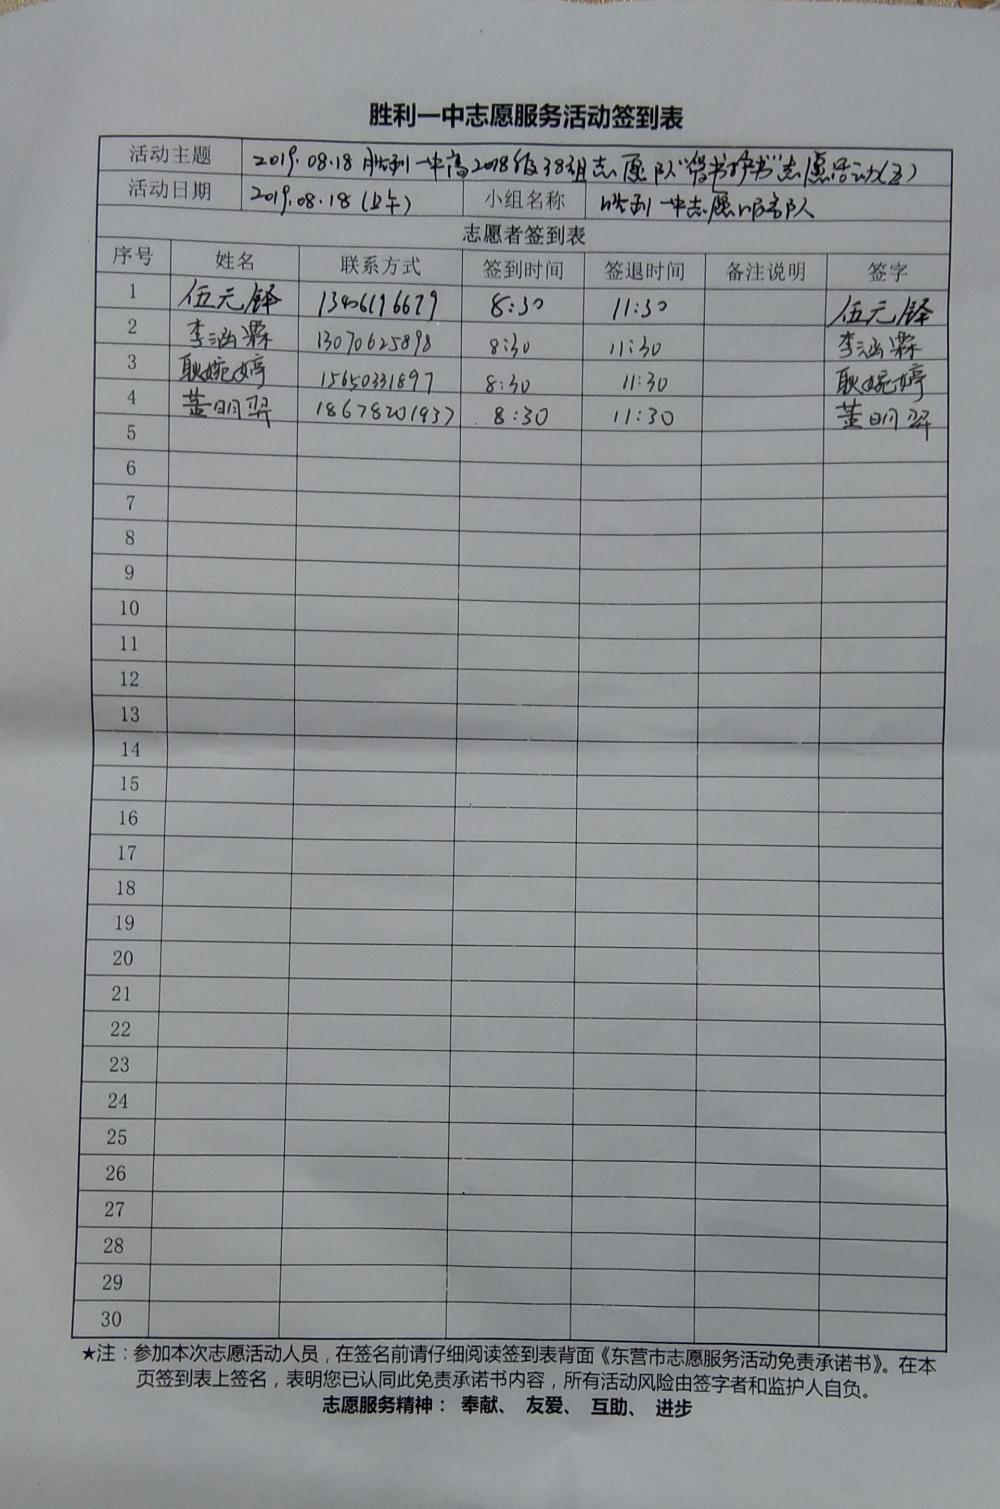 胜利一中志愿服务活动签到表
活动主题 2019.08.18 胜利一中高2018级38组志愿队“借书护书”志愿活动(五)
活动日期 2019.08.18(上午) 小组名称 胜利一中志愿服务队
志愿者签到表
序号 姓名 联系方式 签到时间 签退时间 备注说明 签字
1 伍元铎 13406196679 8:30 11:30 伍元铎
2 李涵霖 13070625898 8:30 11:30 李涵霖
3 耿婉婷 15650331897 8:30 11:30 耿婉婷
4 董明羿 18678201937 8:30 11:30 董明羿
5
6
7
8
9
10
11
12
13
14
15
16
17
18
19
20
21
22
23
24
25
26
27
28
29
30
★注：参加本次志愿活动人员，在签名前请仔细阅读签到表背面《东营市志愿服务活动免责承诺书》。在本
页签到表上签名，表明您已认同此免责承诺书内容，所有活动风险由签字者和监护人自负。
志愿服务精神： 奉献、 友爱、 互助、 进步